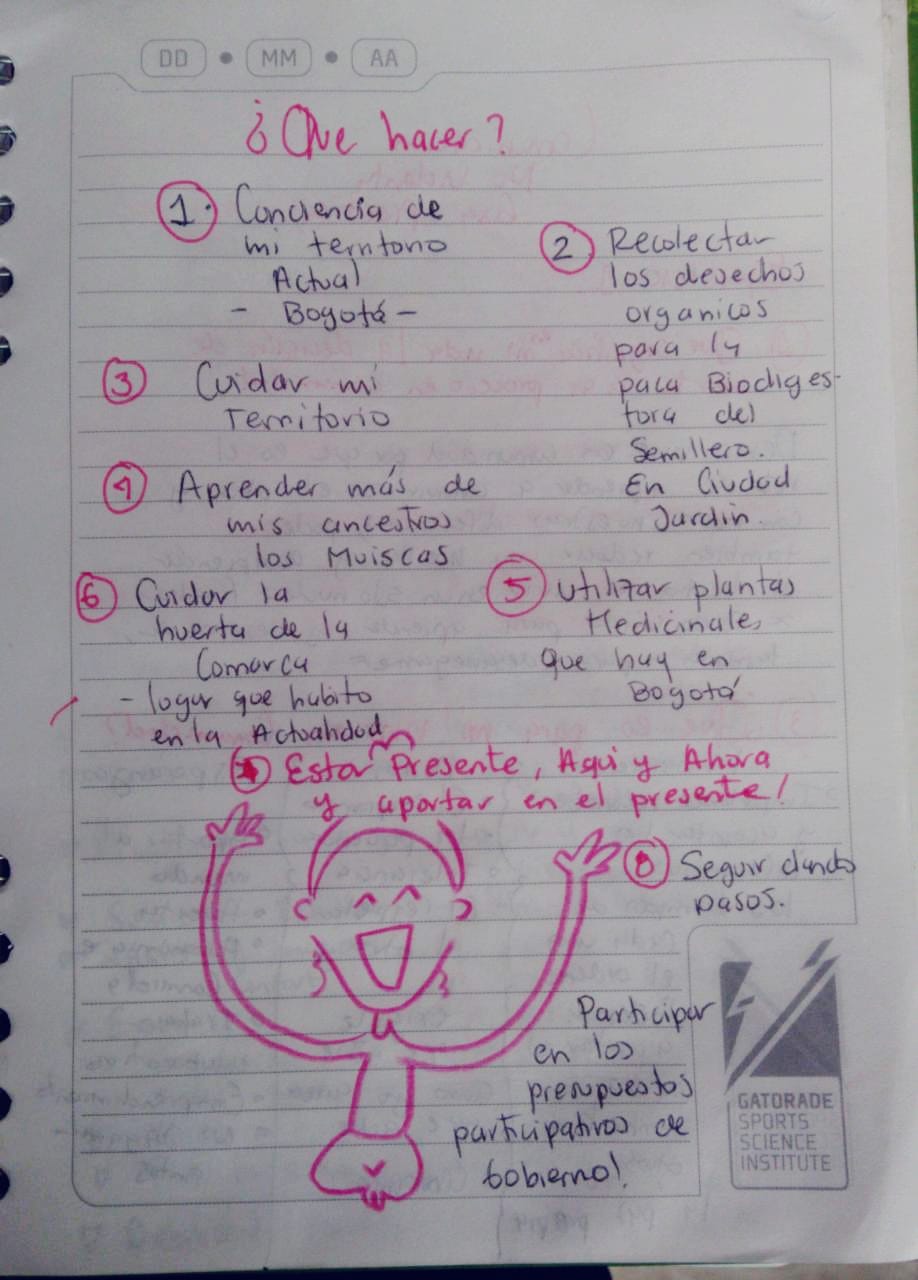 DD • MM • AA
¿Que hacer?
1. Conciencia de
mi territorio
Actual
- Bogotá -
2 Recolectar
los desechos
organicos
para la
paca Biodiges-
tora del
Semillero.
En Ciudad
Jardin
3 Cuidar mi
Territorio
4 Aprender más de
mis ancestros
los Muiscas
5 Utilizar plantas
Medicinales
que hay en
Bogotá
6 Cuidar la
huerta de la
Comarca
- lugar que habito
en la Actualidad
Estar Presente, Aqui y Ahora
y aportar en el presente!
8 Seguir dando
pasos.
Participar
en los
presupuestos
participativos de
Gobierno!
GATORADE
SPORTS
SCIENCE
INSTITUTE